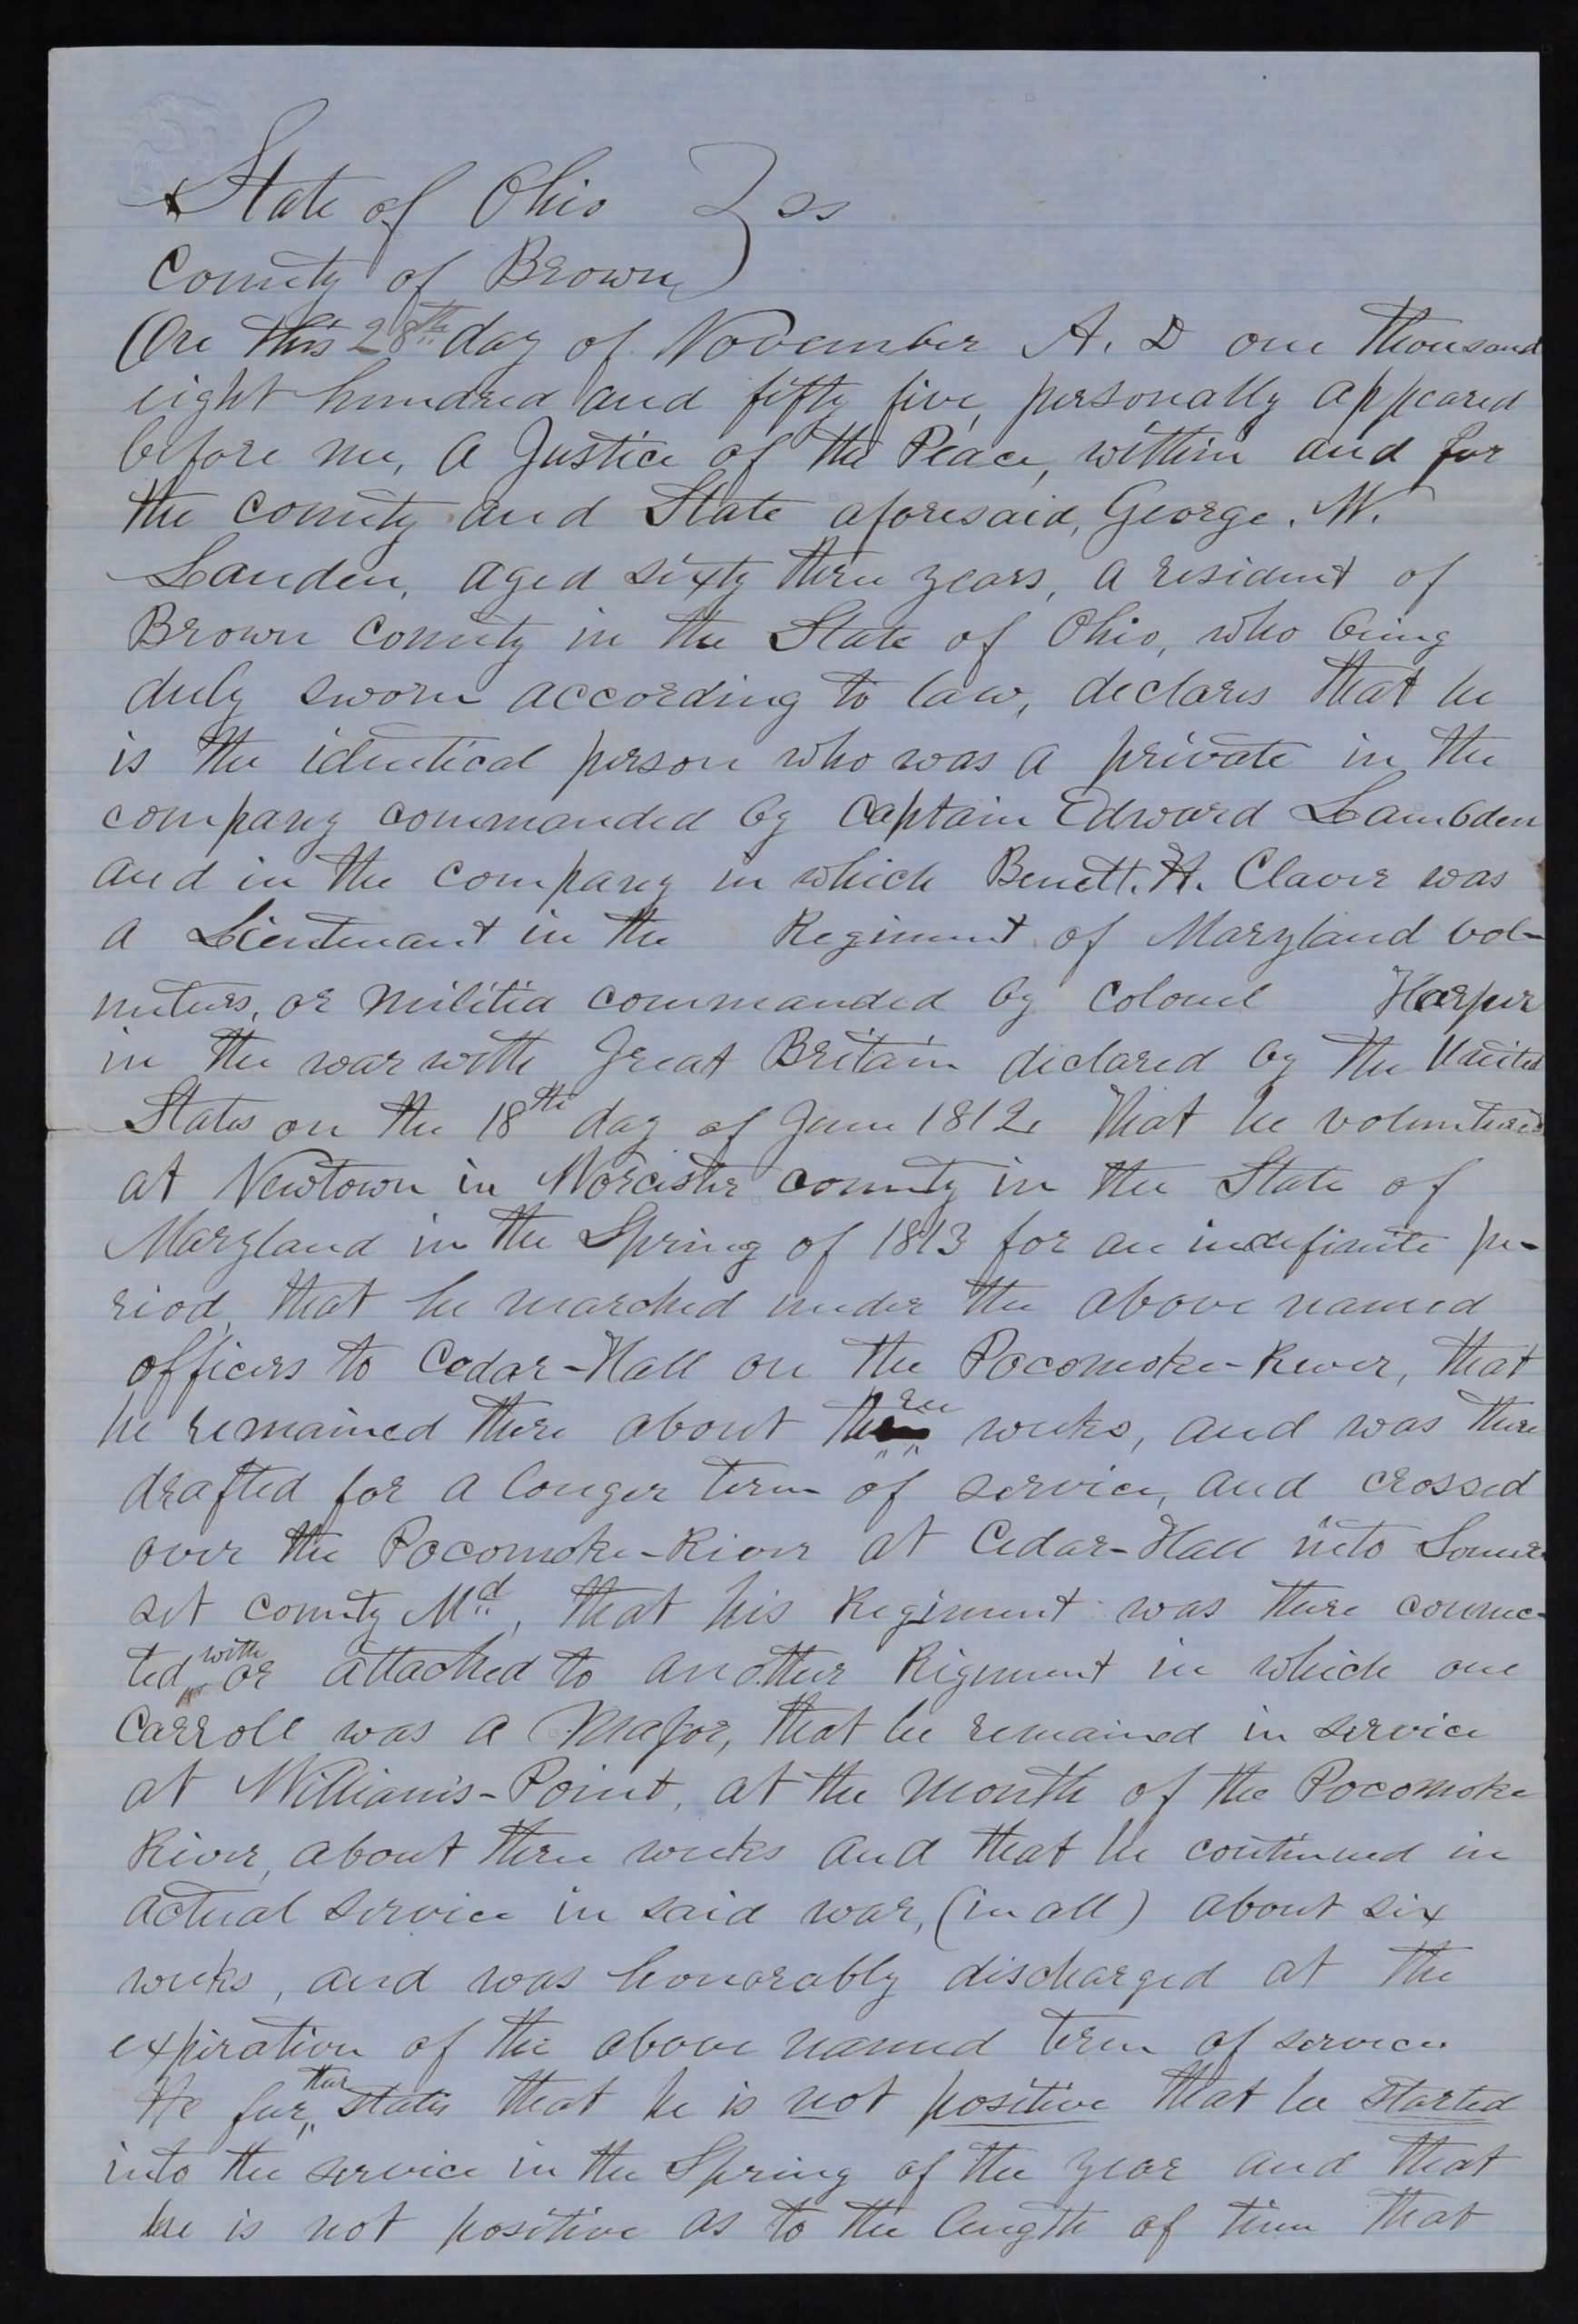 State of Ohio } ss
County of Brown
On this 28th day of November A. D one thousand
eight hundred and fifty five, personally appeared
before me, a Justice of the Peace, within and for
the county and State aforesaid, George. W.
Landen, aged sixty three years, a resident of
Brown county in the State of Ohio, who being
duly sworn according to law, declares that he
is the identical person who was a private in the
company commanded by Captain Edward Lambden
and in the company in which Benett. H. Clavor was
a Lieutenant in the Regiment of Maryland vol-
unteers, or militia commanded by Colonel Harper
in the war with Great Britain declared by the United
States on the 18th day of June 1812. That he volunteered
at Newtown in Worcester county in the State of
Maryland in the Spring of 1813 for an indefinite pe-
riod, that he marched under the above named
officers to Cedar-Hall on the Pocomoke-River, that
he remained there about three weeks, and was there
drafted for a longer term of service, and crossed
over the Pocomoke-River at Cedar-Hall into Somer-
set county Md, that his Regiment was there connec-
ted with or attached to another Regiment in which one
Carroll was a Major, that he remained in service
at William's-Point, at the mouth of the Pocomoke
River, about three weeks and that he continued in
actual service in said war, (in all) about six
weeks, and was honorably discharged at the
expiration of the above named term of service.
He further states that he is not positive that he started
into the service in the Spring of the year and that
he is not positive as to the length of time that